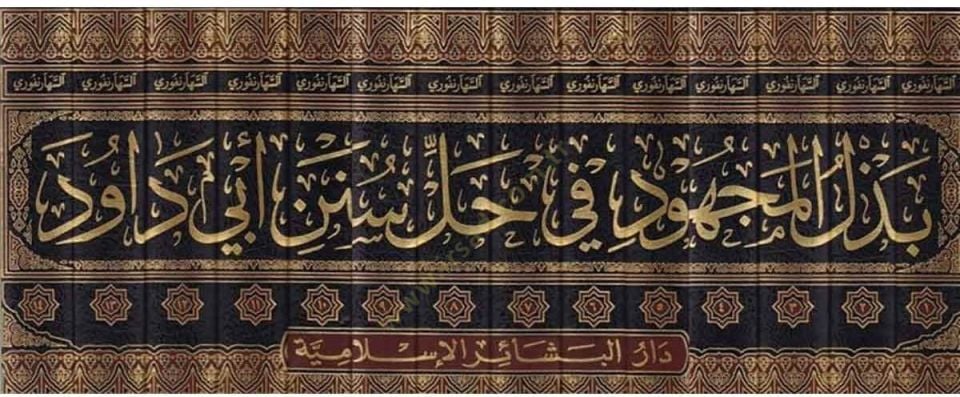 السهارنفوري السهارنفوري السهارنفوري السهارنفوري السهارنفوري السهارنفوري السهارنفوري السهارنفوري السهارنفوري السهارنفوري السهارنفوري السهارنفوري السهارنفوري السهارنفوري
بَذْلُ المَجْهُودِ فِي حَلِّ سُنَنِ أَبِي دَاوُدَ
١ ٢ ٣ ٤ ٥ ٦ ٧ ٨ ٩ ١٠ ١١ ١٢ ١٣ ١٤
دَارُ البَشَائِرِ الإِسْلَامِيَّة